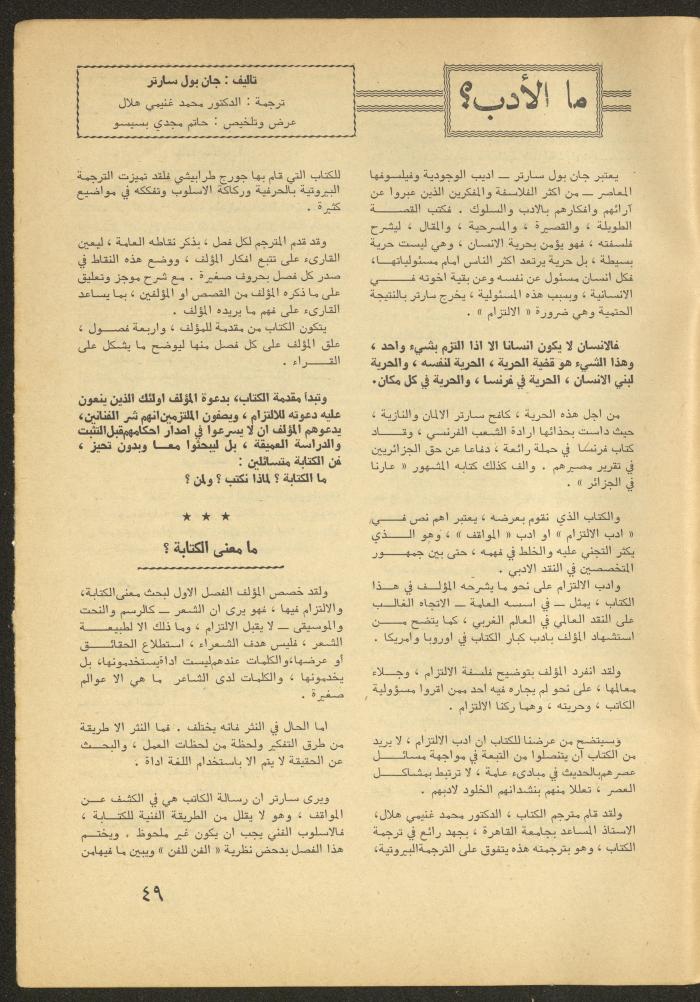 ما الأدب؟
تأليف : جان بول سارتر
ترجمة : الدكتور محمد غنيمي هلال
عرض وتلخيص : حاتم مجدي بسيسو
يعتبر جان بول سارتر ــ اديب الوجودية وفيلسوفها
المعاصر ــ من اكثر الفلاسفة والمفكرين الذين عبروا عن
آرائهم وافكارهم بالادب والسلوك . فكتب القصـــة
الطويلة ، والقصيرة ، والمسرحية ، والمقال ، ليشرح
فلسفته ، فهو يؤمن بحرية الانسان ، وهي ليست حرية
بسيطة ، بل حرية يرتعد اكثر الناس امام مسئولياتهـا،
فكل انسان مسئول عن نفسه وعن بقية اخوته فـــي
الانسانية ، وبسبب هذه المسئولية ، يخرج سارتر بالنتيجة
الحتمية وهي ضرورة « الالتزام » .
فالانسان لا يكون انسانا الا اذا التزم بشيء واحد ،
وهذا الشيء هو قضية الحرية ، الحرية لنفسه ، والحرية
لبني الانسان ، الحرية في فرنسا ، والحرية في كل مكان.
من اجل هذه الحرية ، كافح سارتر الالمان والنازية ،
حيث داست بحذائها ارادة الشعب الفرنسي ، وقـــاد
كتاب فرنسا في حملة رائعة ، دفاعا عن حق الجزائريين
في تقرير مصيرهم . والف كذلك كتابه المشهور « عارنا
في الجزائر » .
والكتاب الذي نقوم بعرضه ، يعتبر اهم نص فـــي
« ادب الالتزام » او ادب « المواقف » ، وهو الـــذي
يكثر التجني عليه والخلط في فهمه ، حتى بين جمهـــور
المتخصصين في النقد الادبي .
وادب الالتزام على نحو ما يشرحه المؤلــف في هــذا
الكتاب ، يمثل ــ في اسسه العامة ــ الاتجاه الغالــب
على النقد العالمي في العالم الغربي ، كما يتضح مـــن
استشهاد المؤلف بادب كبار الكتاب في اوروبا وامريكا .
ولقد انفرد المؤلف بتوضيح فلسفة الالتزام ، وجـــلاء
معالمها ، على نحو لم يجاره فيه احد ممن اقروا مسؤولية
الكاتب ، وحريته ، وهما ركنا الالتزام .
وسيتضح من عرضنا للكتاب ان ادب الالتزام ، لا يريد
من الكتاب ان يتنصلوا من التبعة في مواجهة مسائــــل
عصرهم بالحديث في مبادىء عامة ، لا ترتبط بمشاكـــل
العصر ، تعللا منهم بنشدانهم الخلود لادبهم .
ولقد قام مترجم الكتاب ، الدكتور محمد غنيمي هلال،
الاستاذ المساعد بجامعة القاهرة ، بجهد رائع في ترجمة
الكتاب ، وهو بترجمته هذه يتفوق على الترجمةالبيروتية،
للكتاب التي قام بها جورج طرابيشي فلقد تميزت الترجمة
البيروتية بالحرفية وركاكة الاسلوب وتفككه في مواضيع
كثيرة .
وقد قدم المترجم لكل فصل ، بذكر نقاطه العامة ، ليعين
القارىء على تتبع افكار المؤلف ، ووضع هذه النقاط في
صدر كل فصل بحروف صغيرة . مع شرح موجز وتعليق
على ما ذكره المؤلف من القصص او المؤلفين ، بما يساعد
القارىء على فهم ما يريده المؤلف .
يتكون الكتاب من مقدمة للمؤلف ، واربعة فصـــول ،
علق المؤلف على كل فصل منها ليوضح ما يشكل على
القـــراء .
وتبدأ مقدمة الكتاب، بدعوة المؤلف اولئك الذين ينعون
عليه دعوته للالتزام ، ويصفون الملتزمينانهم شر الفنانين،
يدعوهم المؤلف ان لا يسرعوا في اصدار احكامهمقبلالتثبت
والدراسة العميقة ، بل ليبحثوا معـــا وبدون تحيز ،
فن الكتابة متسائلين :
ما الكتابة ؟ لماذا نكتب ؟ ولمن ؟
★ ★ ★
ما معنى الكتابة ؟
ولقد خصص المؤلف الفصل الاول لبحث معنىالكتابة،
والالتزام فيها ، فهو يرى ان الشعر ــ كالرسم والنحت
والموسيقى ــ لا يقبل الالتزام ، وما ذلك الا لطبيعـــة
الشعر ، فليس هدف الشعراء ، استطلاع الحقائـــق
أو عرضها،والكلمات عندهمليست اداةيستخدمونها، بل
يخدمونها ، والكلمات لدى الشاعر ما هي الا عوالم
صغيرة .
اما الحال في النثر فانه يختلف . فما النثر الا طريقة
من طرق التفكير ولحظة من لحظات العمل ، والبحـــث
عن الحقيقة لا يتم الا باستخدام اللغة اداة .
ويرى سارتر ان رسالة الكاتب هي في الكشف عـــن
المواقف ، وهو لا يقلل من الطريقة الفنية للكتـــابة ،
فالاسلوب الفني يجب ان يكون غير ملحوظ . ويختــم
هذا الفصل بدحض نظرية « الفن للفن » ويبين ما فيهامن
٤٩